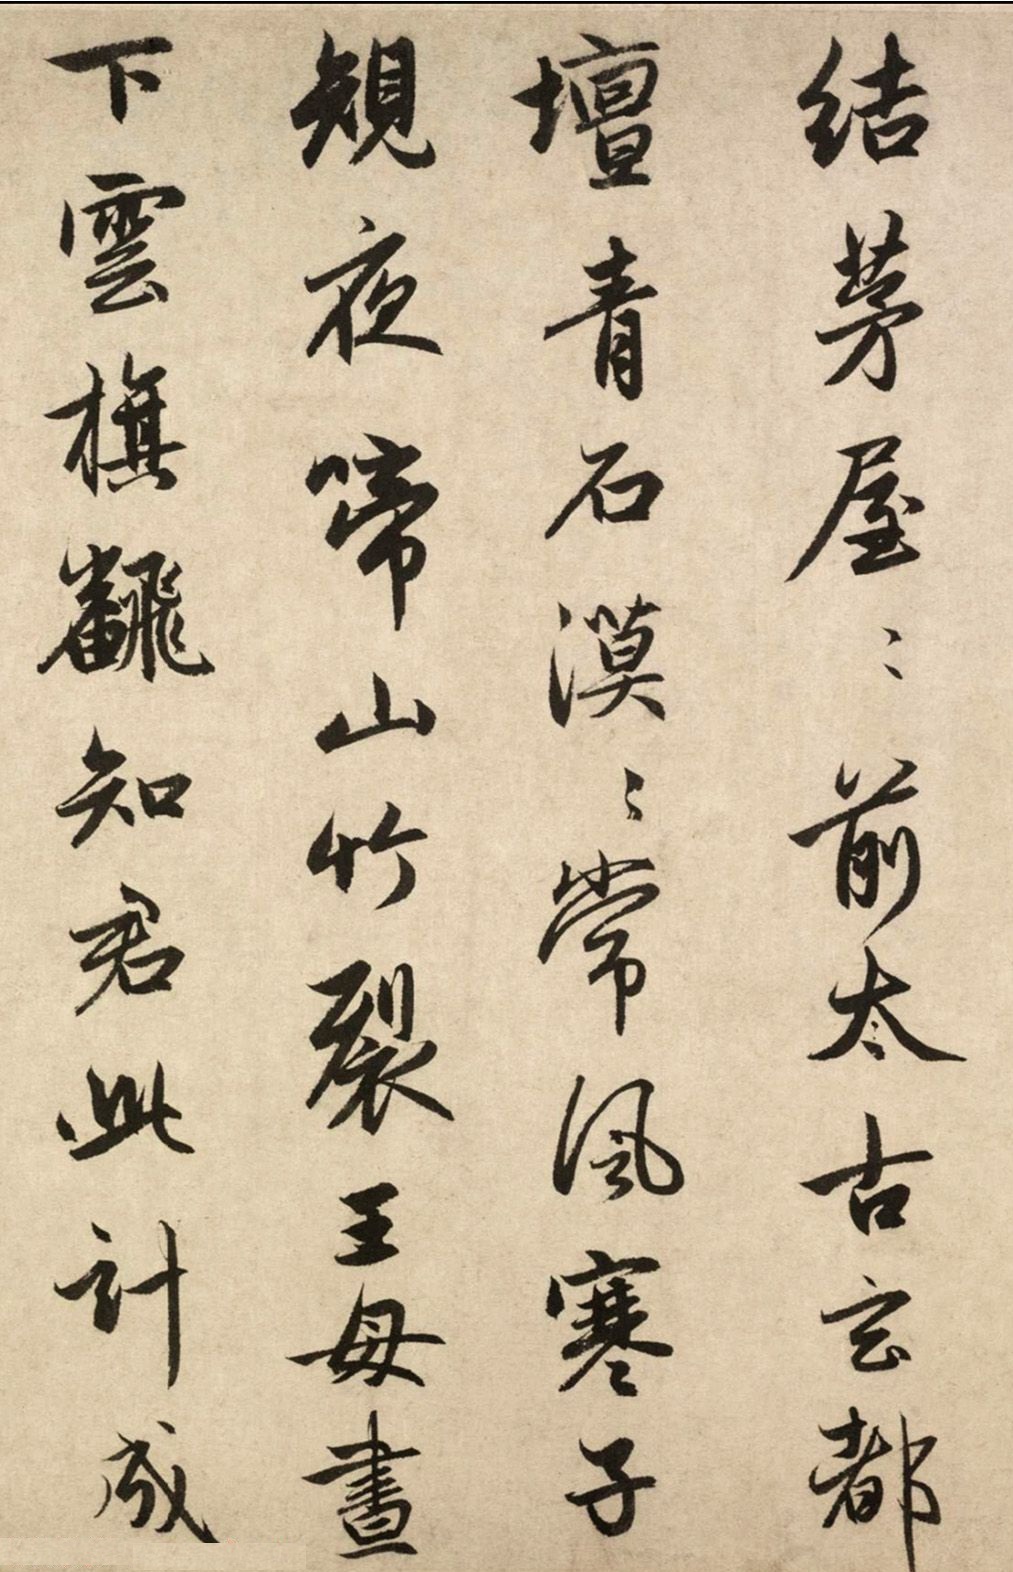 結茅屋〻前太古玄都
壇青石漠〻常風寒子
䂓夜啼山竹裂王母晝
下雲旗飜知君此計成